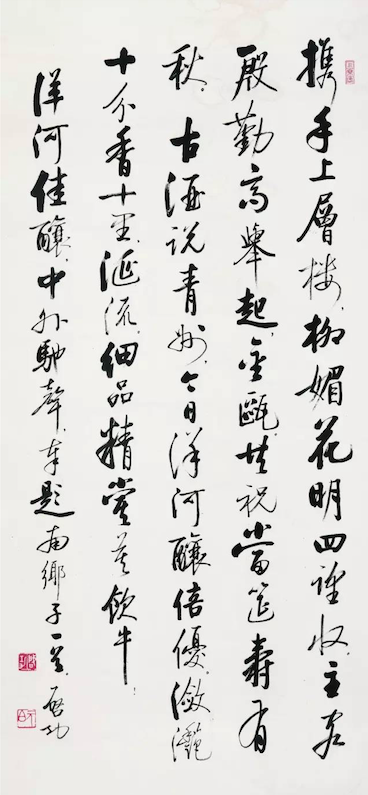 携手上層樓柳媚花明四望收主客
殷勤高舉起金甌共祝當筵壽有
秋古酒説青州今日洋河釀倍優瀲灧
十分香十里涎流細品精嘗莫飲牛
洋河佳釀中外馳聲奉題南鄉子一首啓功